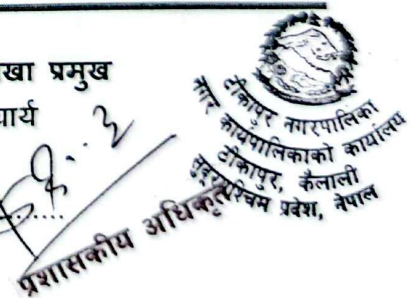 खा प्रमुख
चार्य
प्रशासकीय अधिकृत
टीकापुर नगरपालिका
नगर कार्यपालिकाको कार्यालय
टीकापुर, कैलाली
सुदूरपश्चिम प्रदेश, नेपाल